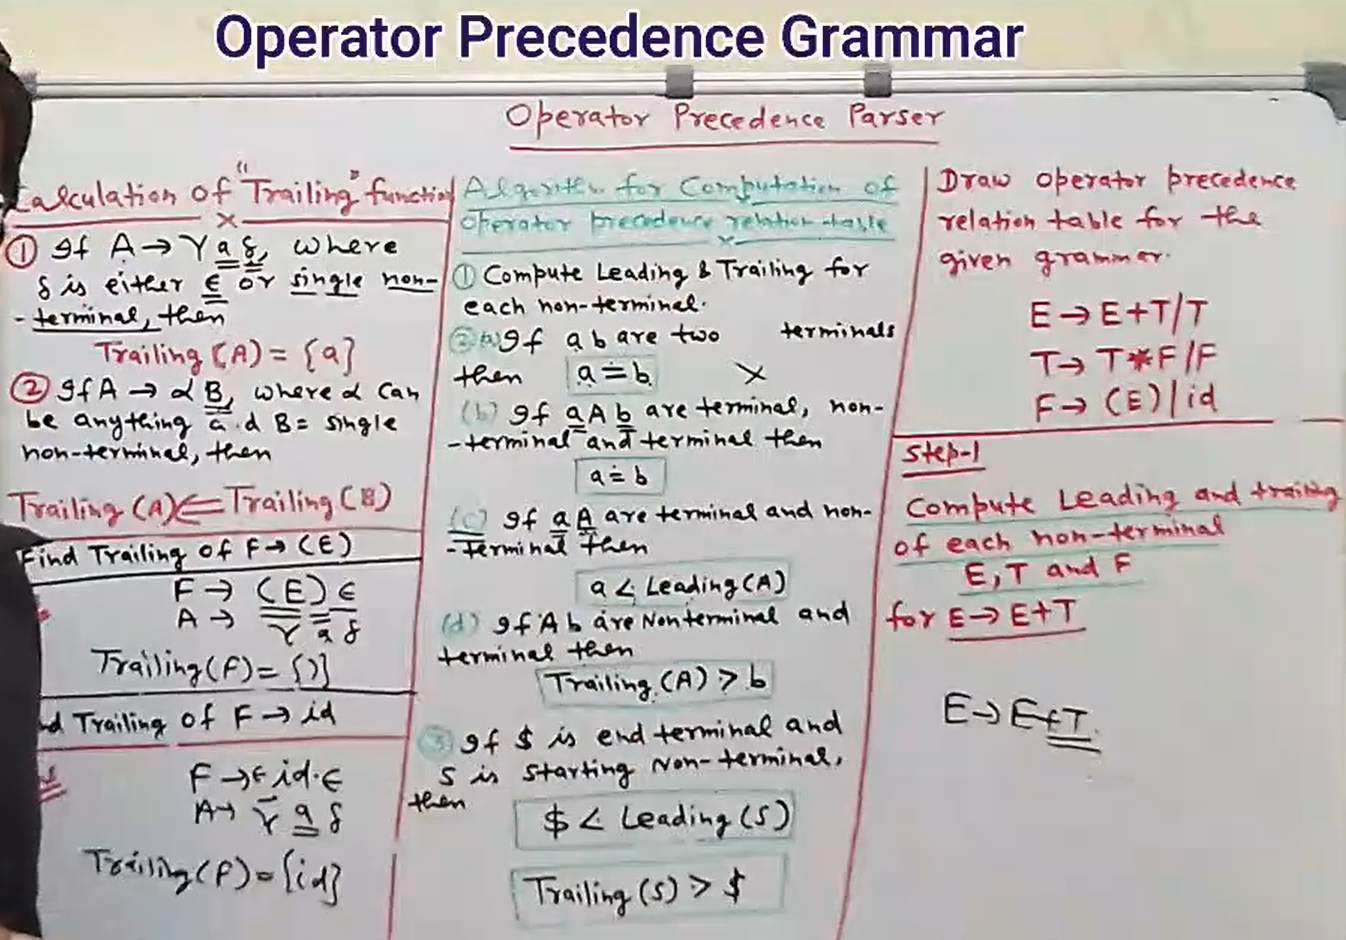 Operator Precedence Grammar
Operator Precedence Parser
Calculation of "Trailing" function
x
① If A → γ a δ, where
δ is either ϵ or single non-
-terminal, then
Trailing (A) = {a}
② If A → α B, where α can
be anything a d B = single
non-terminal, then
Trailing (A) ⇐ Trailing (B)
Find Trailing of F → (E)
F → (E) ϵ
A → γ a δ
Trailing (F) = {)}
d Trailing of F → id
F → ϵ id . ϵ
A → γ a δ
Trailing (F) = {id}
Algorithm for Computation of
operator precedence relation table
x
① Compute Leading & Trailing for
each non-terminal.
② a) If a b are two terminals
then a ≐ b x
(b) If a A b are terminal, non-
-terminal and terminal then
a ≐ b
(c) If a A are terminal and non-
-terminal then
a ⋖ Leading (A)
(d) If A b are Nonterminal and
terminal then
Trailing (A) > b
③ If $ is end terminal and
S is starting Non-terminal,
then
$ ⋖ Leading (S)
Trailing (S) > $
Draw operator precedence
relation table for the
given grammer.
E → E + T / T
T → T * F / F
F → (E) | id
Step-1
Compute Leading and trailing
of each non-terminal
E, T and F
for E → E + T
E → E + T.